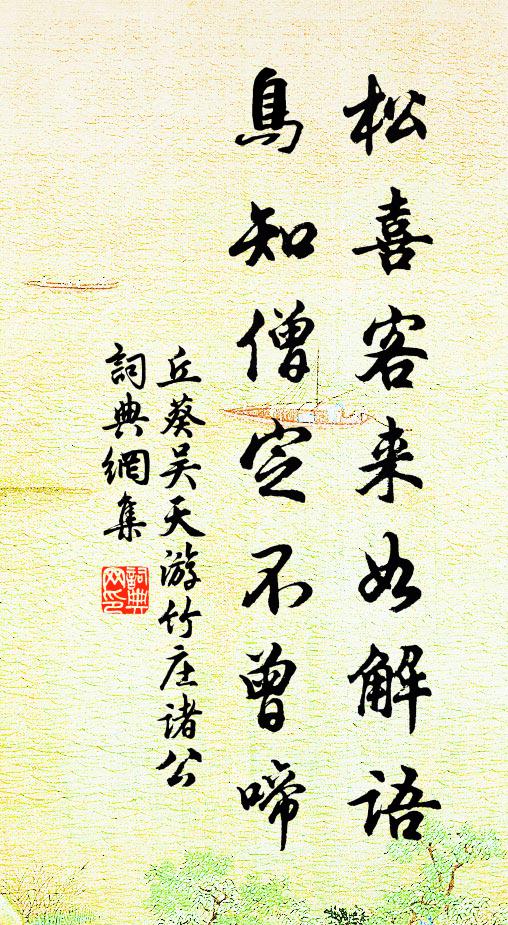 松喜客来如解语
鳥知僧定不曾啼
丘葵吴天游竹庄诸公
詞典網集
詞典网印